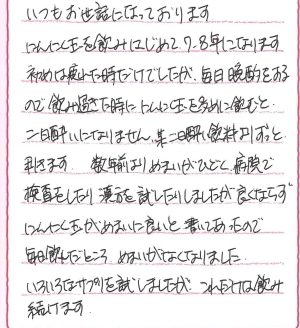 いつもお世話になっております
にんにく玉を飲みはじめて7-8年になります
初めは疲れた時だけでしたが、毎日晩酌をする
ので飲み過ぎた時ににんにく玉を多めに飲むと
二日酔いになりません。某二日酔い飲料よりずっと
利きます。 数年前よりめまいがひどく病院で
検査をしたり漢方を試したりしましたが良くならず
にんにく玉がめまいに良いと書いてあったので
毎日飲んだところ めまいがなくなりました
いろいろなサプリを試しましたが これだけは飲み
続けます.